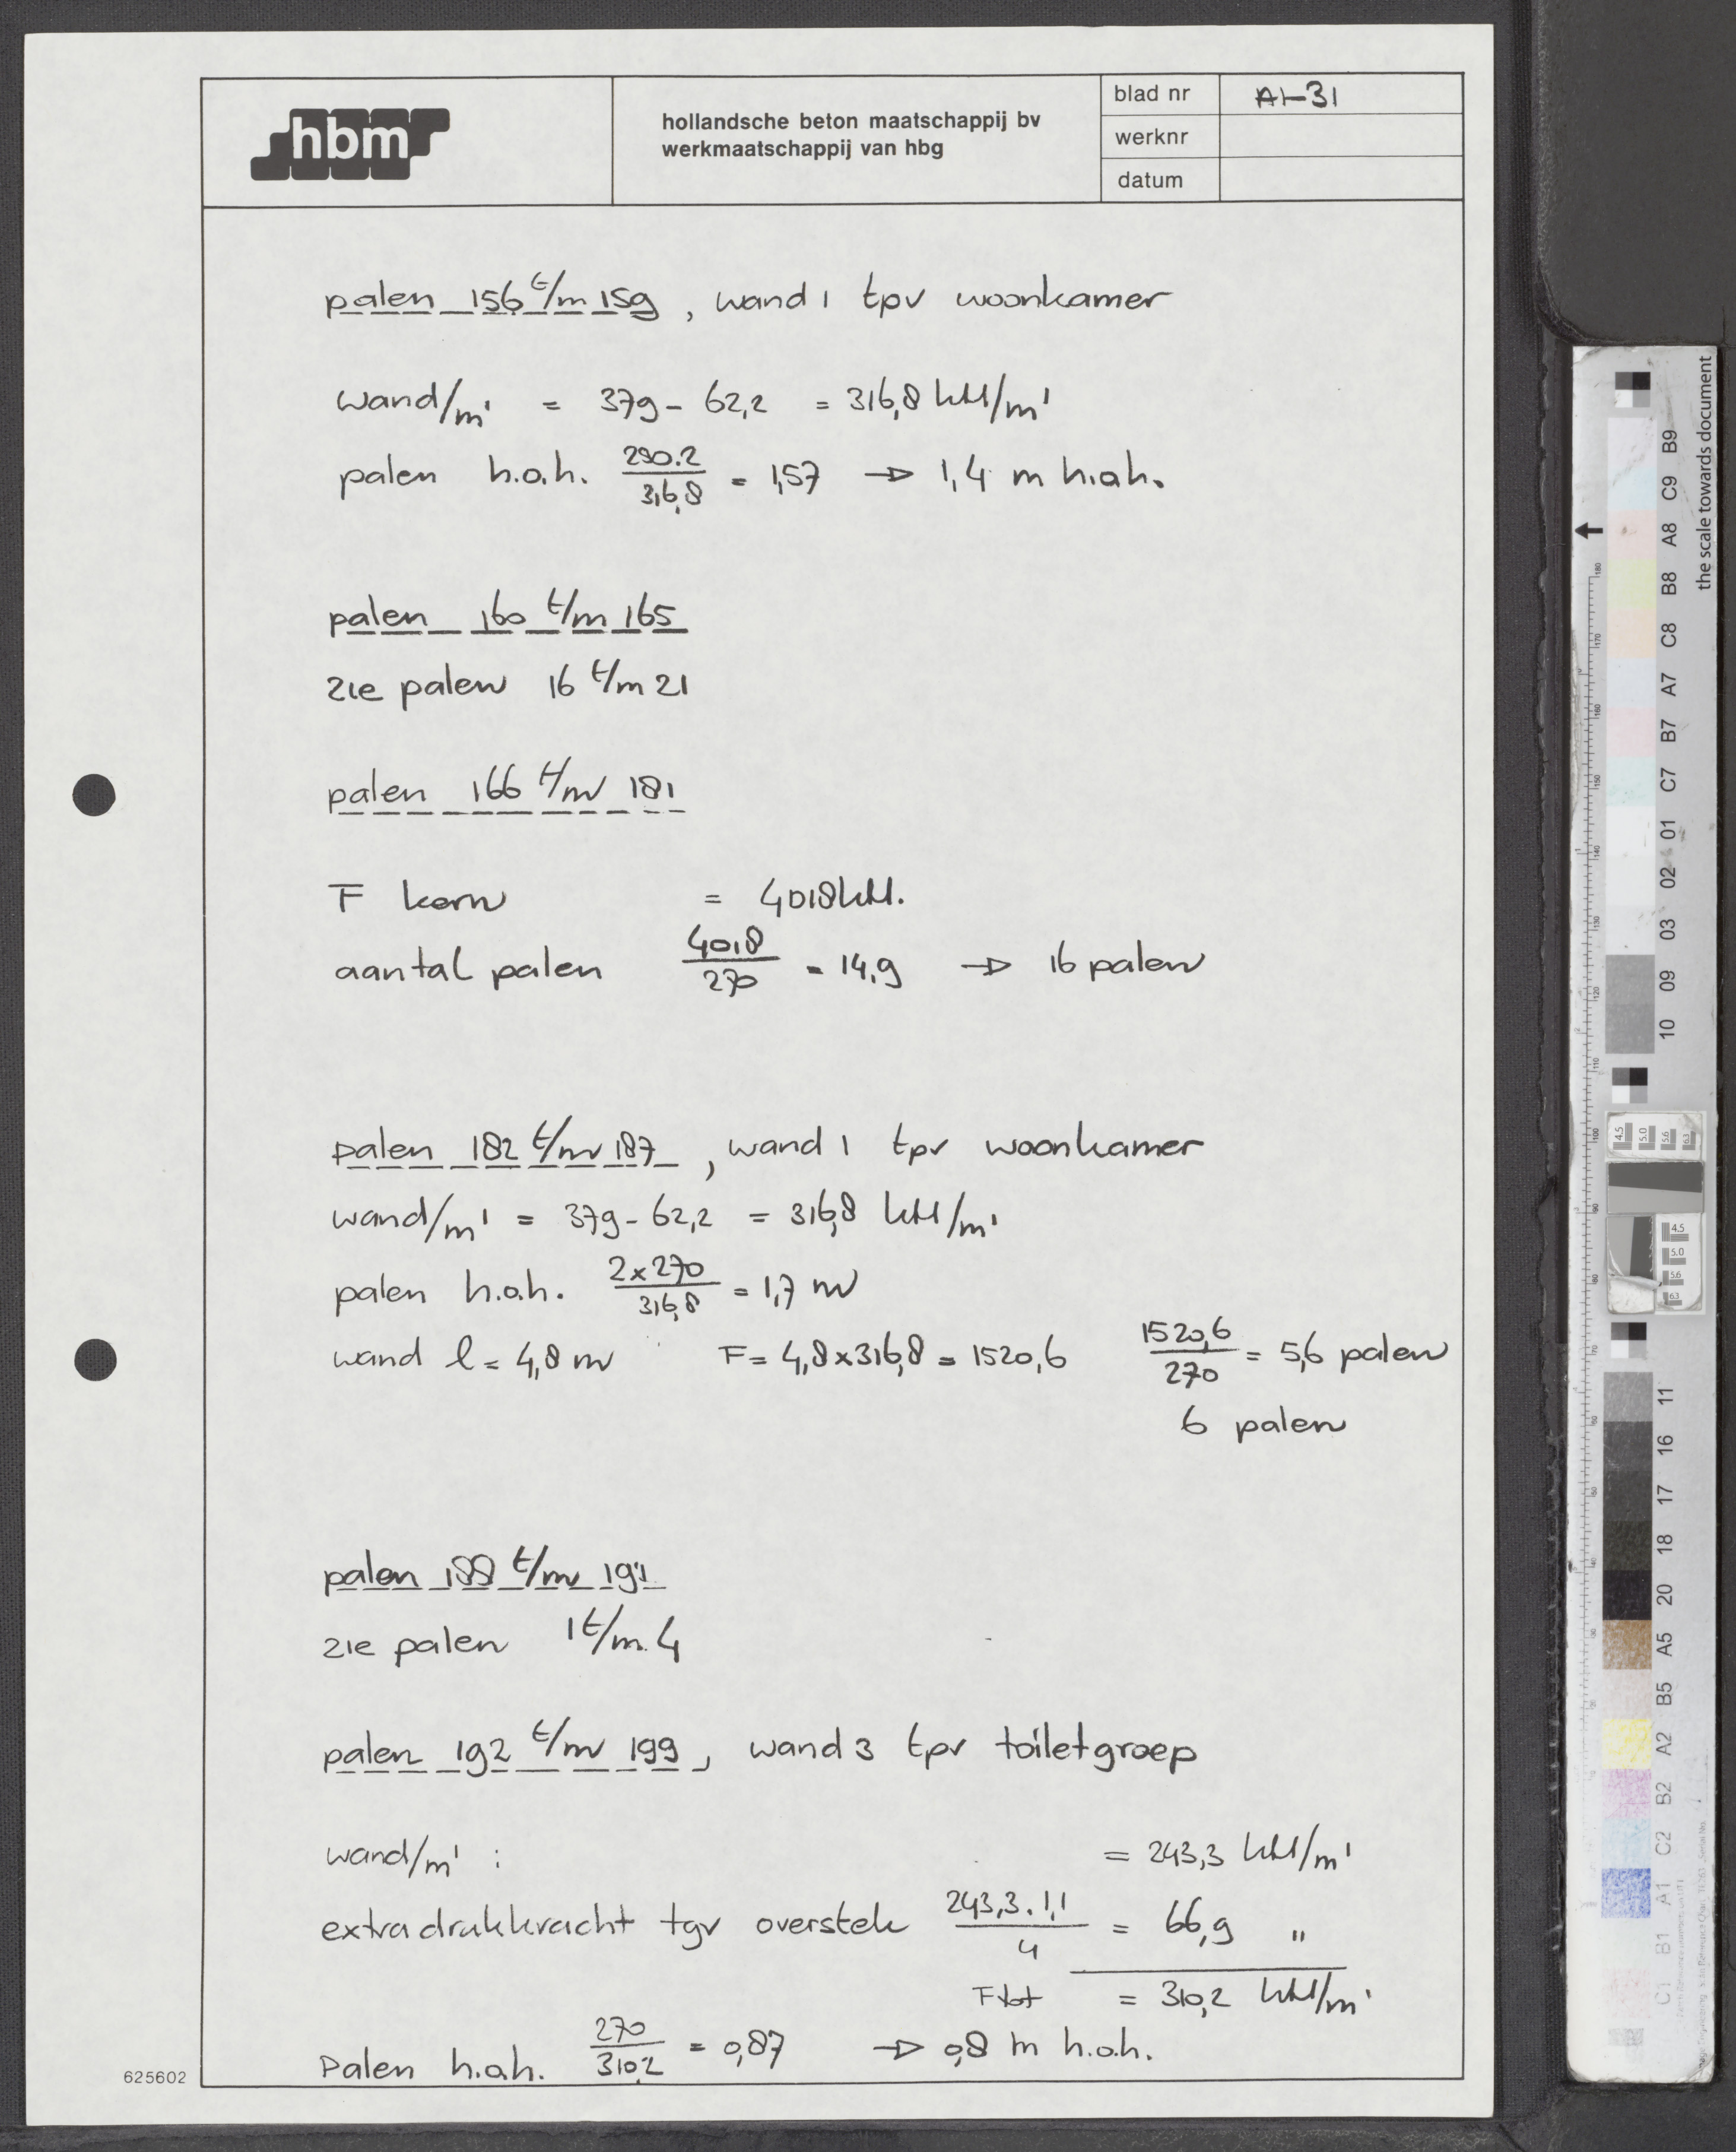 hbm
hollandsche beton maatschappij bv
werkmaatschappij van hbg
blad nr A1-31
werknr
datum
palen 156 t/m 159, wand 1 tpv woonkamer
wand/m' = 379 - 62,2 = 316,8 kN/m'
palen h.o.h. 290.2/316,8 = 1,57 → 1,4 m h.o.h.
palen 160 t/m 165
zie palen 16 t/m 21
palen 166 t/m 181
F kern = 4018 kN.
aantal palen 4018/270 = 14,9 → 16 palen
palen 182 t/m 187, wand 1 tpv woonkamer
wand/m' = 379 - 62,2 = 316,8 kN/m'
palen h.o.h. 2x270/316,8 = 1,7 m
wand l = 4,8 m F = 4,8x316,8 = 1520,6 1520,6/270 = 5,6 palen
6 palen
palen 188 t/m 191
zie palen 1 t/m 4
palen 192 t/m 199, wand 3 tpv toiletgroep
wand/m' : = 243,3 kN/m'
extra drukkracht tgv overstek 243,3.1,1/4 = 66,9 "
F tot = 310,2 kN/m'
Palen h.o.h. 270/310,2 = 0,87 → 0,8 m h.o.h.
625602
the scale towards document
B9 C9 A8 B8 C8 A7 B7 C7 01 02 03 09 10 11 16 17 18 20 A5 B5 A2 B2 C2 A1 B1 C1